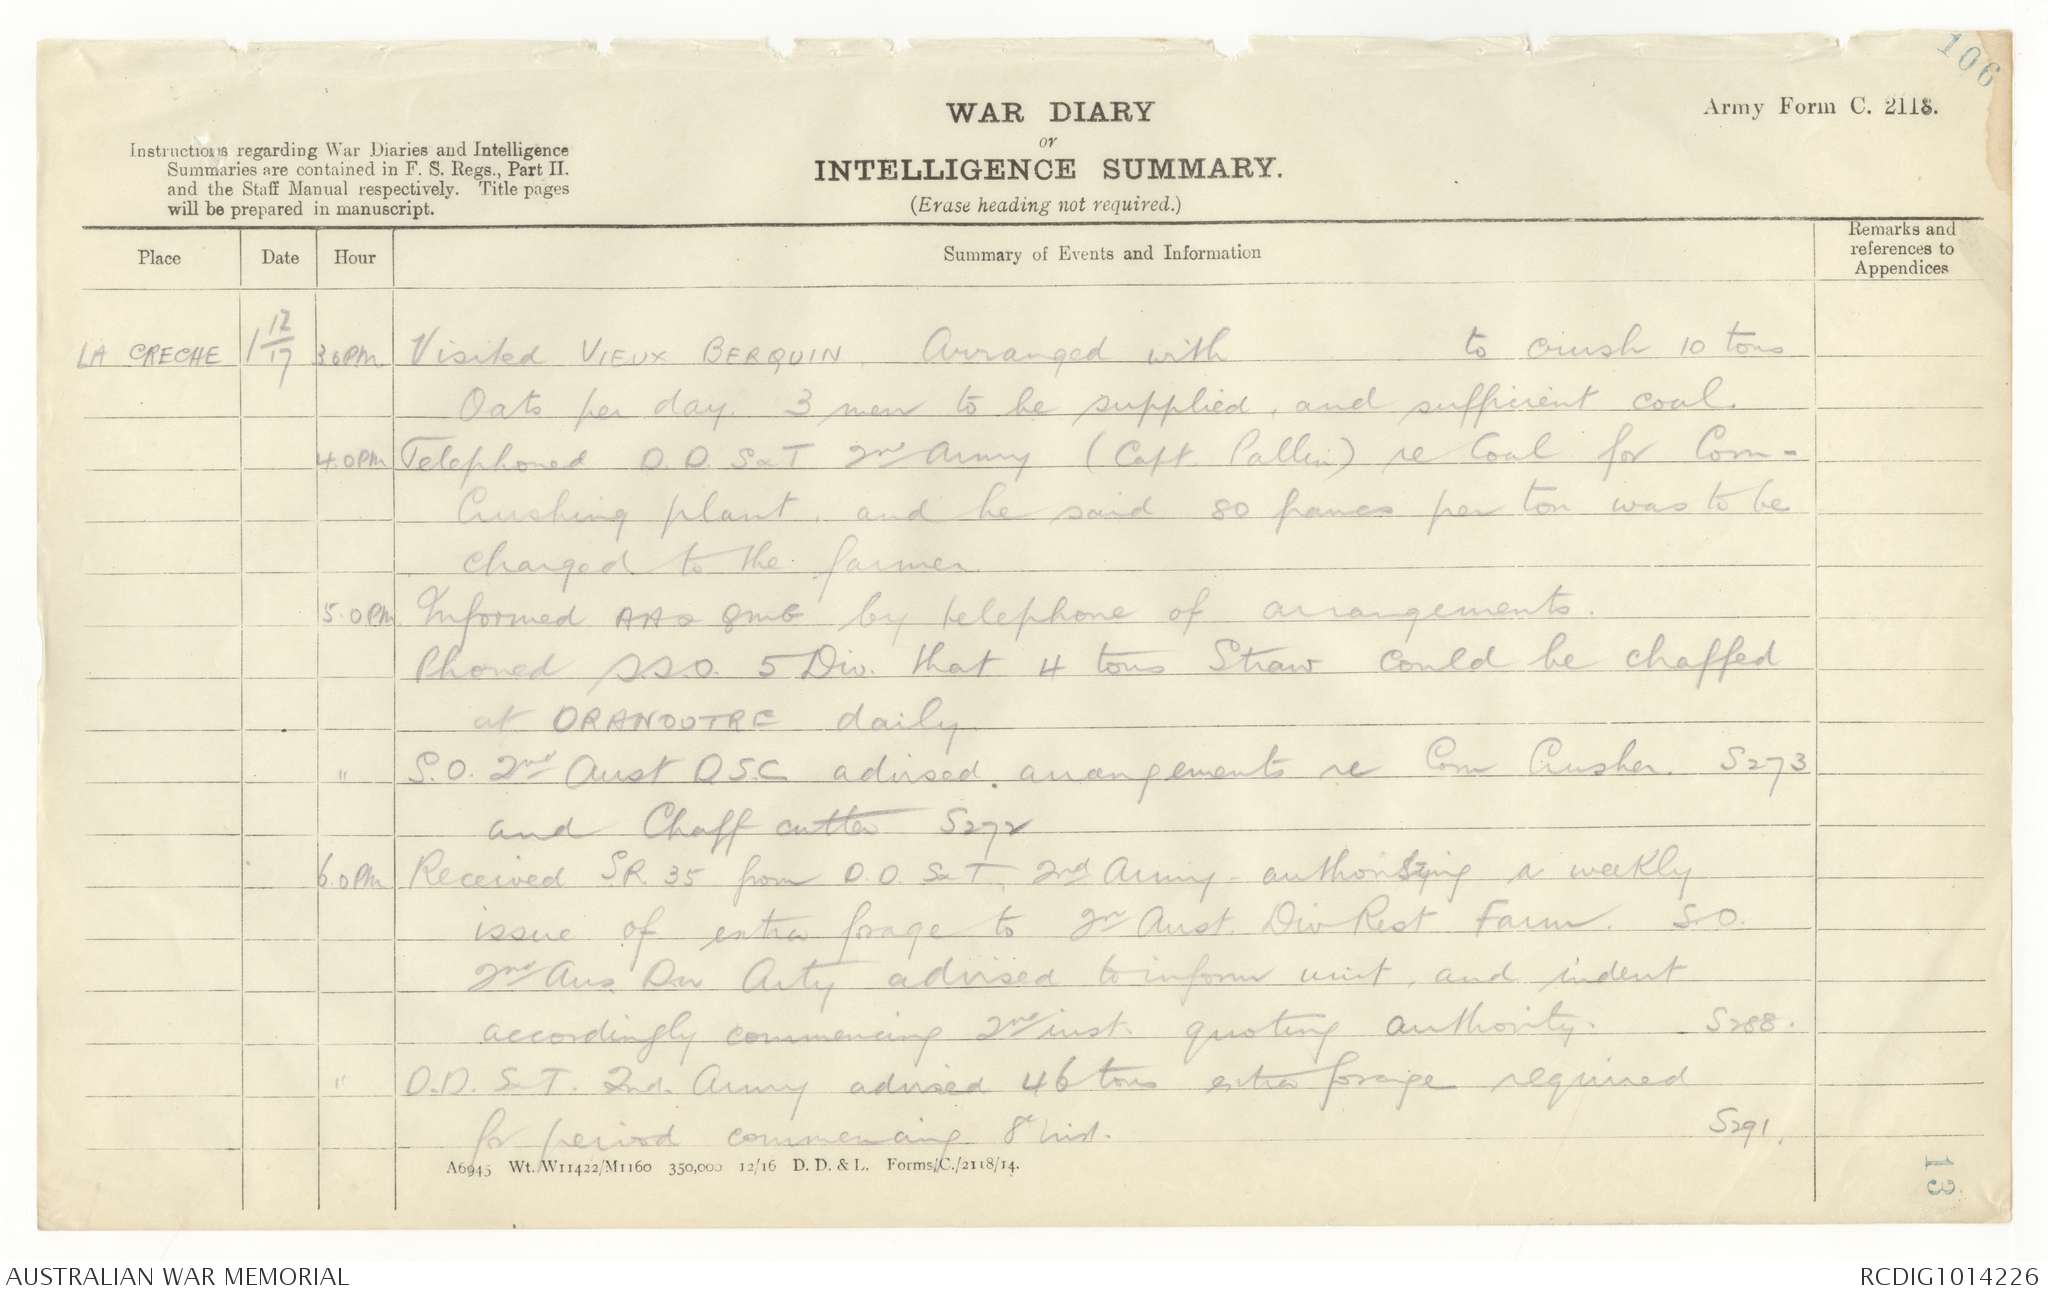 106
WAR DIARY
or
INTELLIGENCE SUMMARY.
(Erase heading not required.)
Army Form C. 2118.
Instructions regarding War Diaries and Intelligence
Summaries are contained in F. S. Regs., Part II.
and the Staff Manual respectively. Title pages
will be prepared in manuscript.
Place Date Hour Summary of Events and Information Remarks and references to Appendices
LA CRECHE 1 12/17 3.0 PM Visited VIEUX BERQUIN. Arranged with to crush 10 tons
Oats per day. 3 men to be supplied, and sufficient coal.
4.0 PM Telephoned D.D. S & T 2nd Army (Capt. Pallin) re Coal for Corn-
Crushing plant, and he said 80 francs per ton was to be
charged to the farmer.
5.0 PM Informed AA & QMG by telephone of arrangements.
Phoned S.S.O. 5 Div. that 4 tons Straw could be chaffed
at DRANOUTRE daily
" S.O. 2nd Aust D.S.C. advised arrangements re Corn Crusher. S273
and Chaff cutter S272
6.0 PM Received S.R. 35 from D.D. S & T. 2nd Army - authorising a weekly
issue of extra forage to 2nd Aust. Div Rest Farm. S.O.
2nd Aus Div Arty advised to inform unit, and indent
accordingly commencing 2nd inst. quoting authority. S288.
" D.D. S & T. 2nd. Army advised 46 tons extra forage required
for period commencing 8th inst. S291.
A6945 Wt. W11422/M1160 350,000 12/16 D. D. & L. Forms/C./2118/14.
13
AUSTRALIAN WAR MEMORIAL
RCDIG1014226